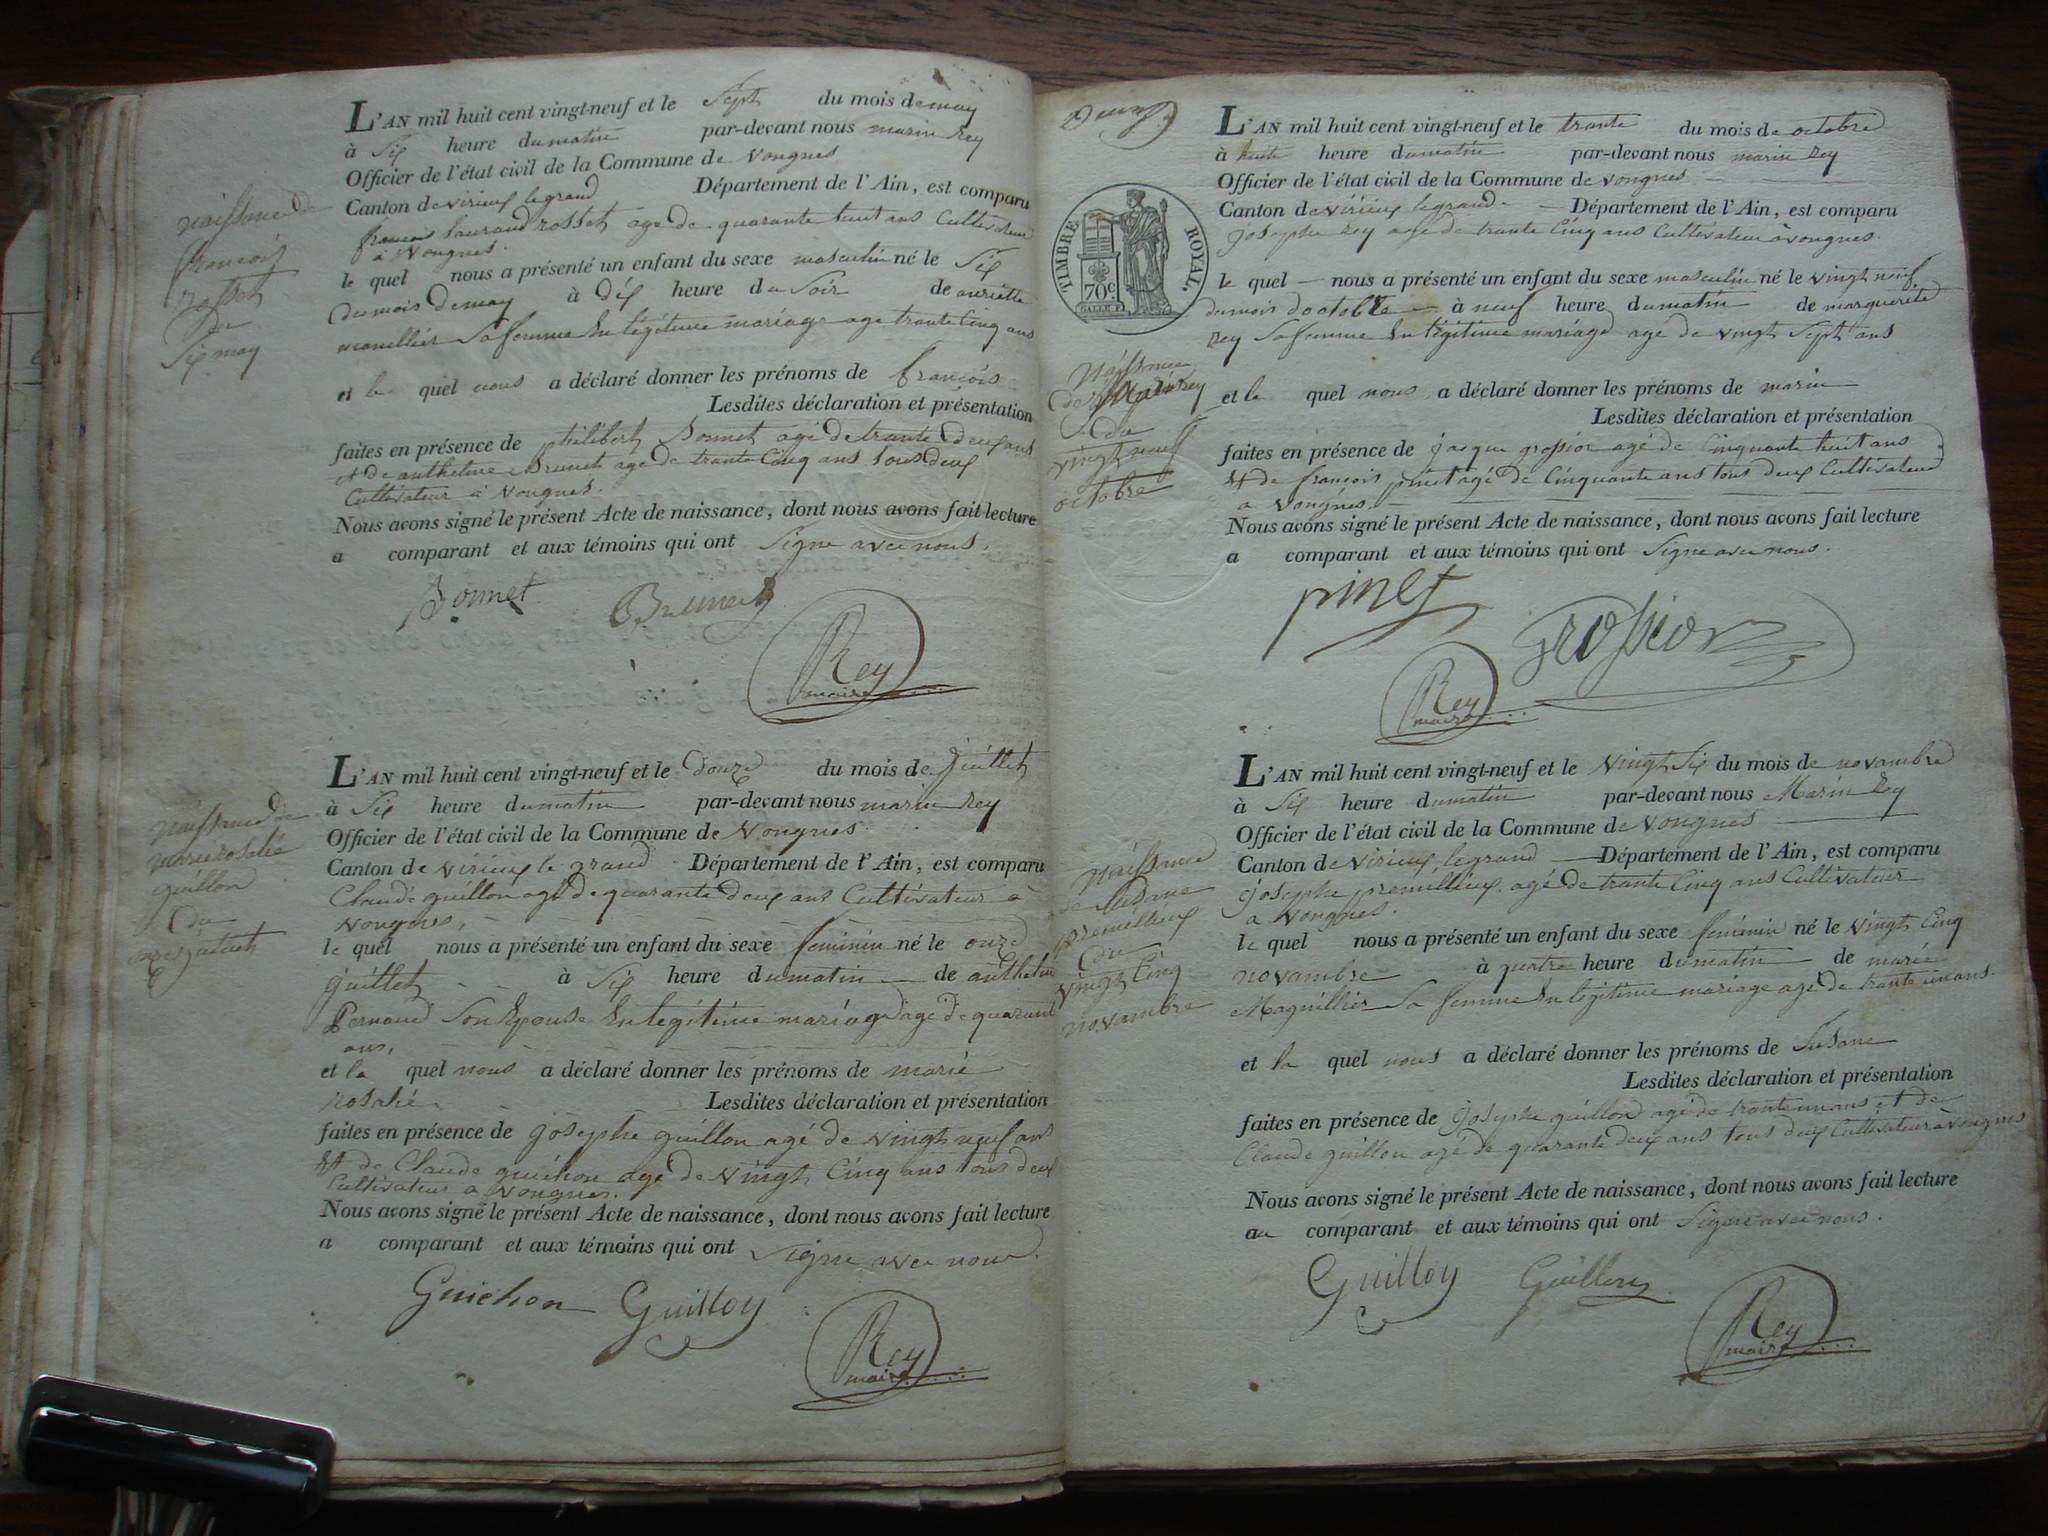 L'AN mil huit cent vingt-neuf et le Sept du mois de may
à Six heure du matin par-devant nous marin Rey
Officier de l'état civil de la Commune de Vongnes
Canton de virieux le grand Département de l'Ain, est comparu
françois laurand rosset age de quarante huit ans Cultivateur
a Vongnes.
le quel nous a présenté un enfant du sexe masculin né le Six
du mois de may à dix heure du Soir de
Sa femme En légitime mariage age trante Cinq ans
et le quel nous a déclaré donner les prénoms de françois
Lesdites déclaration et présentation
faites en présence de philibert Bonnet agé de trante deux ans
et de anthelme Brunet age de trante Cinq ans tous deux
Cultivateur a Vongnes.
Nous avons signé le présent Acte de naissance, dont nous avons fait lecture
a comparant et aux témoins qui ont Signe avec nous.
Bonnet Brunet
Rey
maire
naissance de
françois
rosset
du
Six may
L'AN mil huit cent vingt-neuf et le douze du mois de juillet
à Six heure du matin par-devant nous marin Rey
Officier de l'état civil de la Commune de Vongnes
Canton de virieux le grand Département de l'Ain, est comparu
Claude guillon agé de quarante deux ans Cultivateur a
Vongnes,
le quel nous a présenté un enfant du sexe feminin né le onze
juillet à Six heure du matin de
Pernoud Son Epouse En legitime mariage agé de quarante
ans,
et la quel nous a déclaré donner les prénoms de marie
rosalie Lesdites déclaration et présentation
faites en présence de josephe guillon agé de vingt neuf ans
Et de Claude guichon agé de vingt Cinq ans tous deux
Cultivateur a Vongnes.
Nous avons signé le présent Acte de naissance, dont nous avons fait lecture
a comparant et aux témoins qui ont Signe avec nous.
Guichon Guilloy
Rey
maire
naissance de
marie rosalie
guillon
du
onze
TIMBRE ROYAL.
70c
L'AN mil huit cent vingt-neuf et le trante du mois de octobre
à huit heure du matin par-devant nous marin Rey
Officier de l'état civil de la Commune de Vongnes
Canton de virieux le grand Département de l'Ain, est comparu
josephe Rey age de trante Cinq ans Cultivateur a vongnes.
le quel nous a présenté un enfant du sexe masculin né le vingt neuf
du mois d octobre à neuf heure du matin de marguerite
Rey Sa femme En légitime mariage agé de vingt Sept ans
et le quel nous a déclaré donner les prénoms de marin
Lesdites déclaration et présentation
faites en présence de jacque grossior agé de Cinquante huit ans
Et de françois pinet agé de Cinquante ans tous deux Cultivateur
a Vongnes.
Nous avons signé le présent Acte de naissance, dont nous avons fait lecture
a comparant et aux témoins qui ont Signe avec nous.
pinet
Grossior
Rey
maire
Naissance
de Marin Rey
du
vingt neuf
octobre
L'AN mil huit cent vingt-neuf et le vingt Six du mois de novambre
à Six heure du matin par-devant nous Marin Rey
Officier de l'état civil de la Commune de Vongnes
Canton de virieux le grand Département de l'Ain, est comparu
josephe premillieux agé de trante Cinq ans Cultivateur
a Vongnes.
le quel nous a présenté un enfant du sexe feminin né le vingt Cinq
novambre à quatre heure du matin de marie
Magnillier Sa femme En légitime mariage agé de trante un ans
et la quel nous a déclaré donner les prénoms de Susane
Lesdites déclaration et présentation
faites en présence de josephe guillon agé de trante un ans et de
Claude guillon agé de quarante deux ans tous deux Cultivateur a vongnes
Nous avons signé le présent Acte de naissance, dont nous avons fait lecture
au comparant et aux témoins qui ont Signe avec nous.
Guilloy Guillon
Rey
maire
Naissance
de Susane
premillieux
du
vingt Cinq
novambre